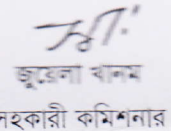 জুয়েনা খানম
সহকারী কমিশনার